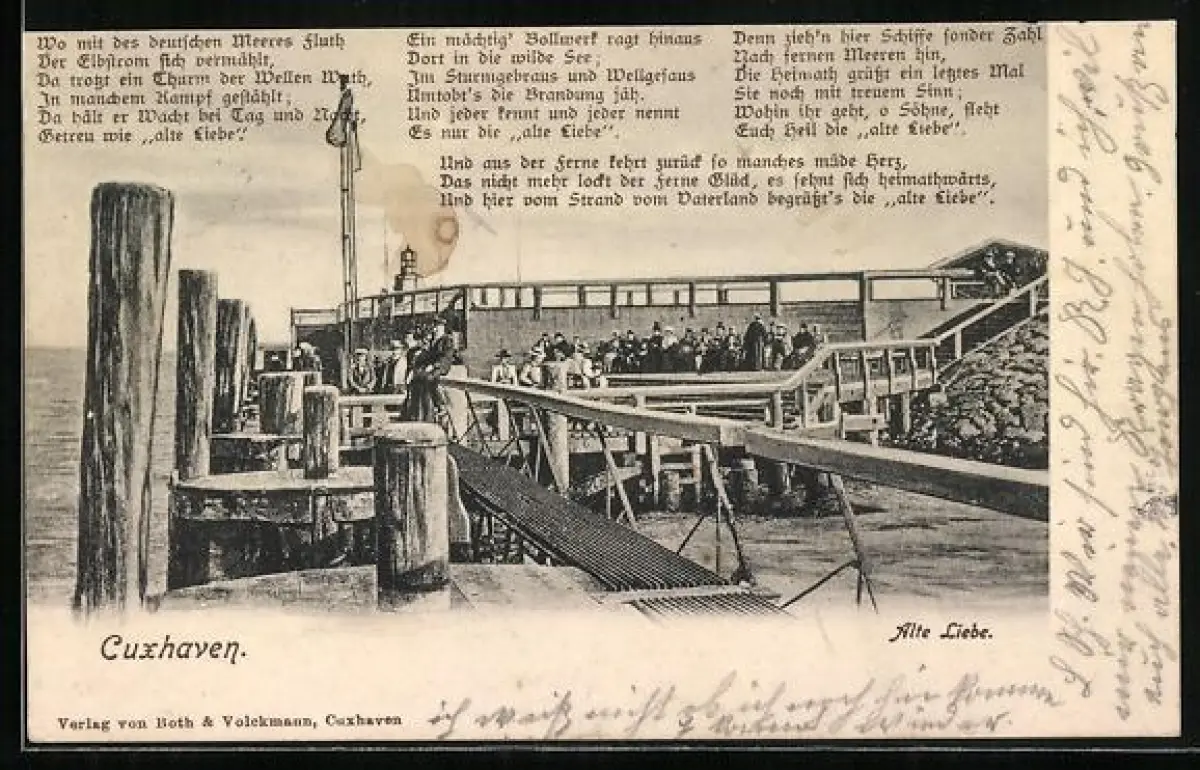 Wo mit des deutschen Meeres Fluth
Der Elbstrom sich vermählt,
Da trotzt ein Thurm der Wellen Wuth,
In manchem Kampf gestählt;
Da hält er Wacht bei Tag und Nacht,
Getreu wie „alte Liebe“.
Ein mächtig' Bollwerk ragt hinaus
Dort in die wilde See;
Im Sturmgebraus und Wellgesaus
Umtobt's die Brandung jäh.
Und jeder kennt und jeder nennt
Es nur die „alte Liebe“.
Denn zieh'n hier Schiffe sonder Zahl
Nach fernen Meeren hin,
Die Heimath grüßt ein letztes Mal
Sie noch mit treuem Sinn;
Wohin ihr geht, o Söhne, fleht
Euch Heil die „alte Liebe“.
Und aus der Ferne kehrt zurück so manches müde Herz,
Das nicht mehr lockt der Ferne Glück, es sehnt sich heimathwärts,
Und hier vom Strand vom Vaterland begrüßt's die „alte Liebe“.
Cuxhaven.
Alte Liebe.
Verlag von Both & Volckmann, Cuxhaven
ich weiß nicht ob ich noch hier komme
wieder.
Wir sind hier. und ich will
nur
auch alle